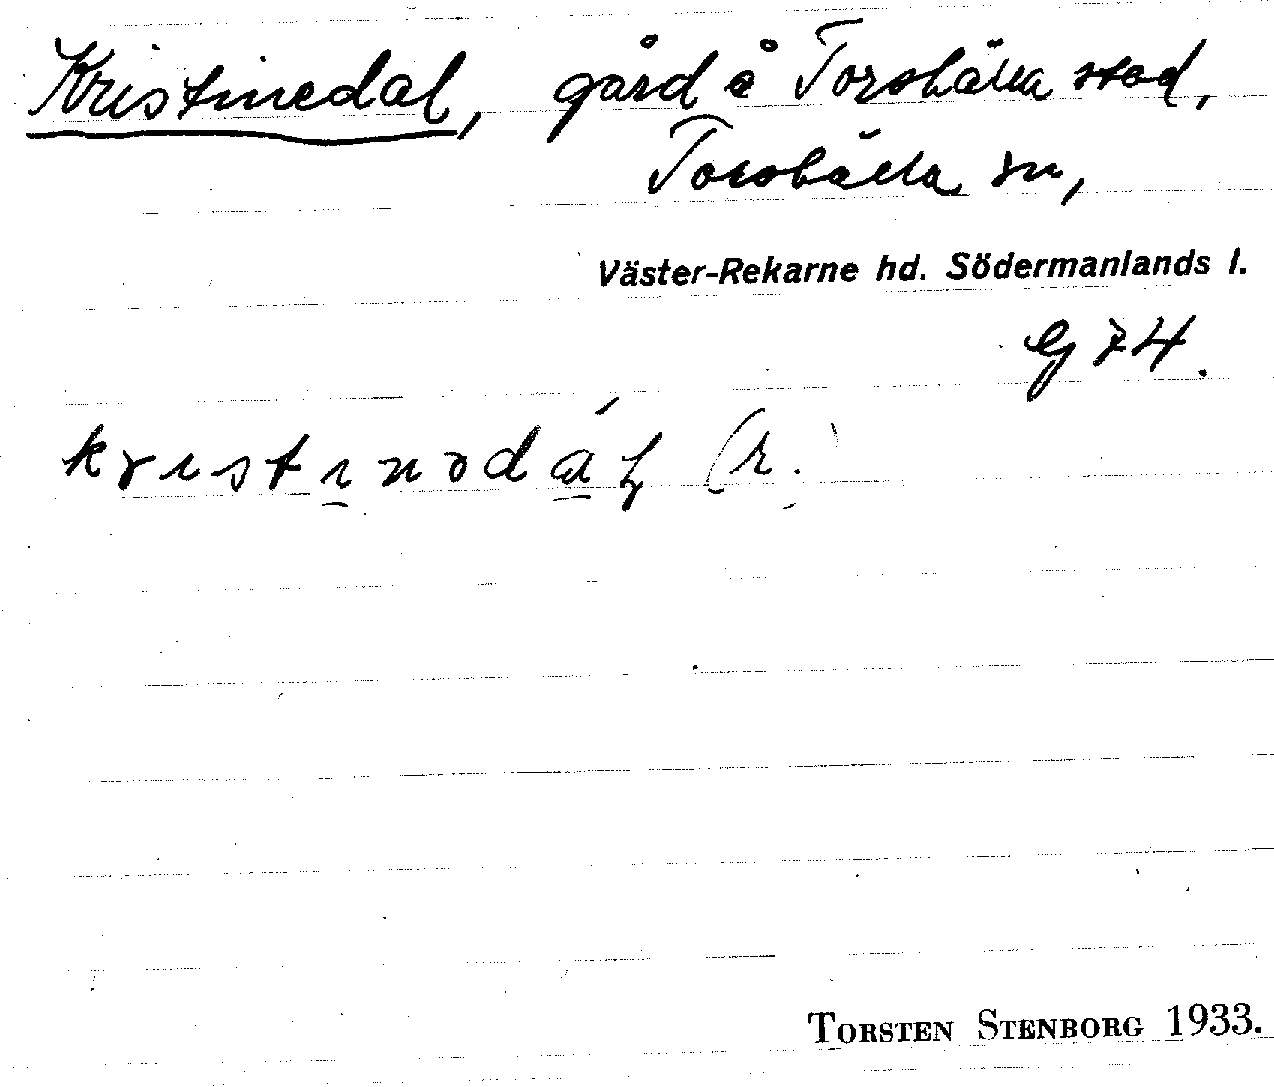 Kristinedal, gård å Torshälla stad,
Torshälla sn,
Väster-Rekarne hd. Södermanlands l.
G 74.
kristinodál (r.)
TORSTEN STENBORG 1933.